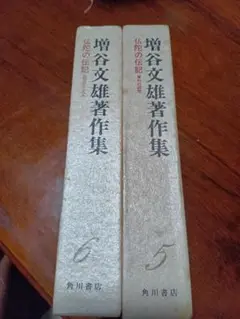 増谷文雄著作集
仏陀の伝記
6
角川書店
増谷文雄著作集
仏陀の伝記
5
角川書店